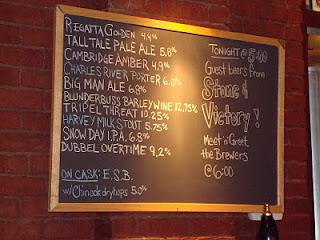 REGATTA GOLDEN 4.4%
TALL TALE PALE ALE 5.8%
CAMBRIDGE AMBER 4.9%
CHARLES RIVER PORTER 6.0%
BIG MAN ALE 6.8%
BLUNDERBUSS BARLEYWINE 12.75%
TRIPEL THREAT 10.25%
HARVEY MILK STOUT 5.75%
SNOW DAY I.P.A. 6.8%
DUBBEL OVERTIME 9.2%
ON CASK: E.S.B.
w/ Chinook dryhops 5.0%
TONIGHT @ 5:00
Guest beers from
Stone &
Victory!
Meet n' Greet
the Brewers
@ 6:00